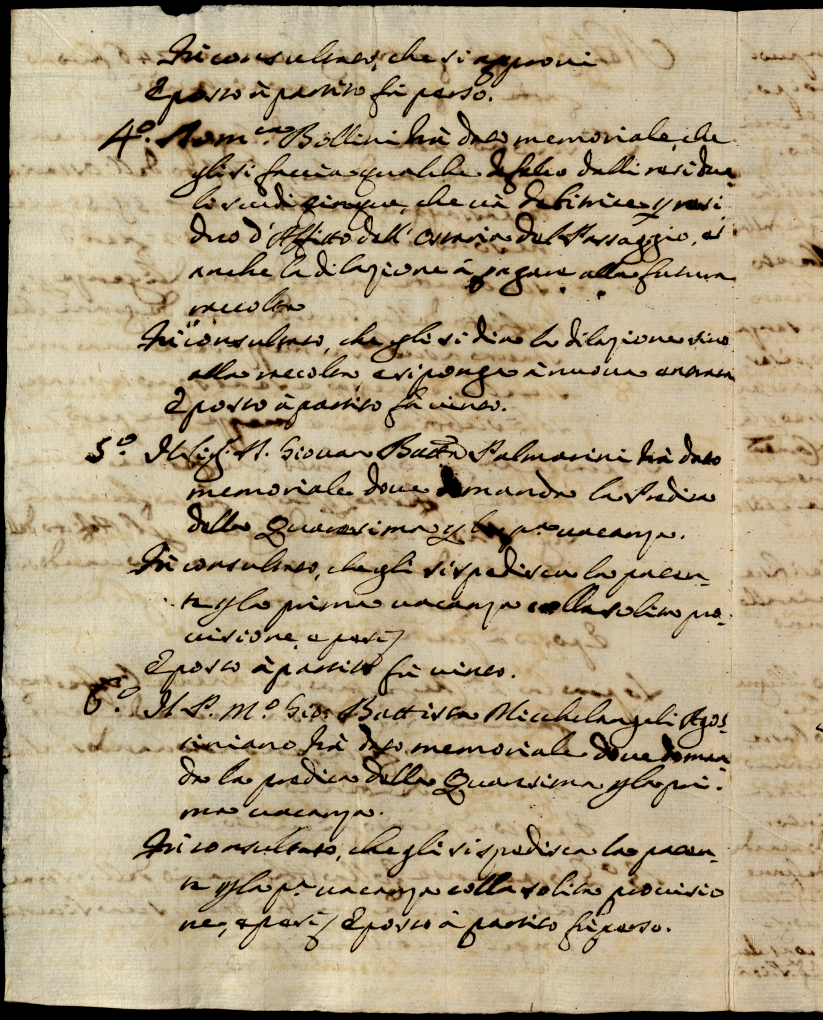 Fù consultato, che si approvi
E posto à partito fù perso.
4.º Dom.ca Bollini hà dato memoriale, che
gli si faccia qualche defalco dalli residua-
li scudi cinque, che và debitrice p resi-
duo d'Affitto dell'Osteria del Passaggio, et
anche la dilazione à pagare alla futura
raccolta
Fù consultato, che gli si dia la dilazione sino
alla raccolta, e si ponga à nuova entrata
E posto à partito fù vinto.
5.º Il Sig.r Giovan Batta Palmarini hà dato
memoriale dove domanda la Predica
della Quaresima p la p.a vacanza.
Fù consultato, che gli si spedisca la paten-
te p la prima vacanza colla solita pro-
visione, e pesi
E posto à partito fù vinto.
6.º Il P. M.º Gio: Battista Micchelangeli Agos-
tiniano hà dato memoriale dove doman-
da la predica della Quaresima p la pri-
ma vacanza.
Fù consultato, che gli si spedisca la paten-
te p la p.a vacanza colla solita provisio
ne, e pesi E posto à partito fù perso.